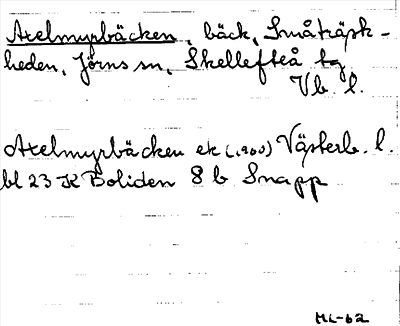 Axelmyrbäcken, bäck, Småträsk-
heden, Jörns sn, Skellefteå tg
Vb. l.
Axelmyrbäcken ek (1900) Västerb. l.
bl 23 K Boliden 8 b Snapp
ML-62